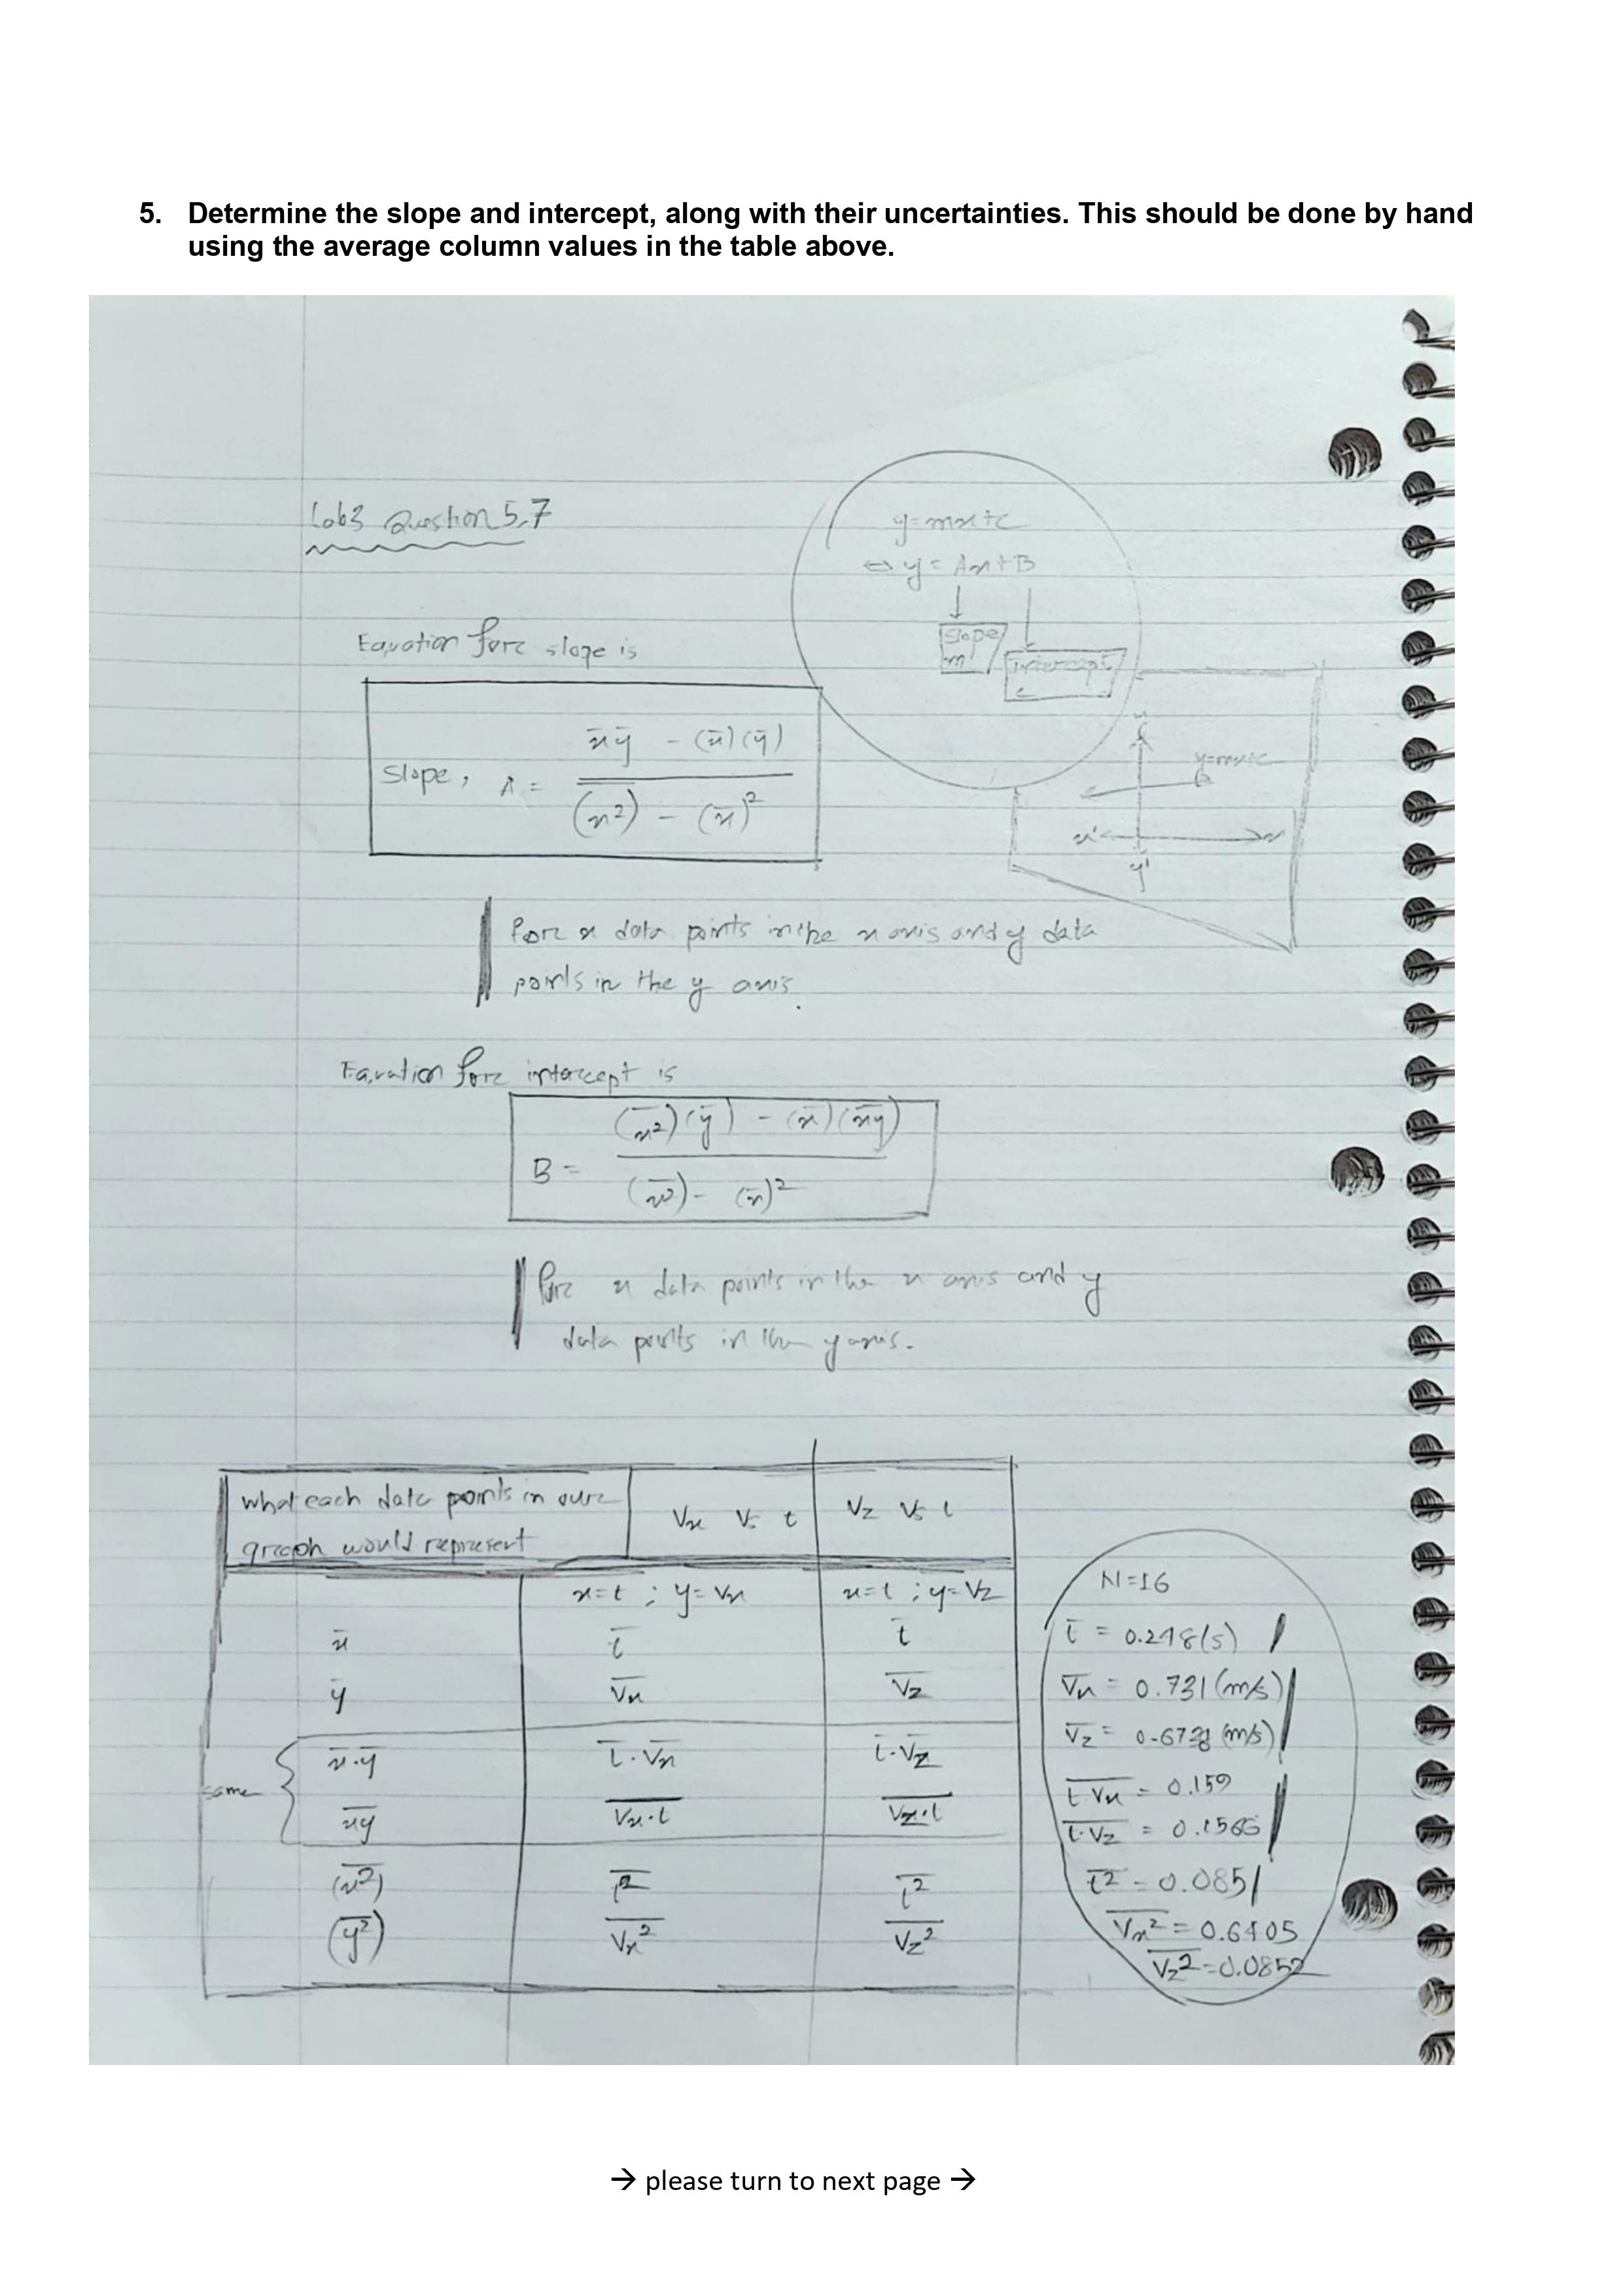 5. Determine the slope and intercept, along with their uncertainties. This should be done by hand
using the average column values in the table above.
Lab3 Question 5,7
y=mx+c
⇔ y = Ax+B
slope
m
intercept
c
Equation fore slope is
Slope, A = (x̄ȳ - (x̄)(ȳ)) / ((x̄²) - (x̄)²)
y=mx+c
x' x
y'
fore x data points in the x axis and y data
points in the y axis.
Equation fore intercept is
B = ((x̄²)(ȳ) - (x̄)(x̄ȳ)) / ((x̄²) - (x̄)²)
fore x data points in the x axis and y
data points in the y axis.
What each data points in oure Vx Vs t Vz Vs t
graph would represent
x=t ; y=Vx x=t ; y=Vz
x̄ t̄ t̄
ȳ V̄x V̄z
x̄·ȳ t̄·V̄x t̄·V̄z
same
x̄ȳ Vx·t Vz·t
(x̄²) t̄² t̄²
(ȳ²) V̄x² V̄z²
N=16
t̄ = 0.248(s)
V̄x = 0.731(m/s)
V̄z = (m/s)
t·Vx = 0.159
t·Vz =
t̄² = 0.085
V̄x² = 0.6405
V̄z² = 0.0852
→ please turn to next page →